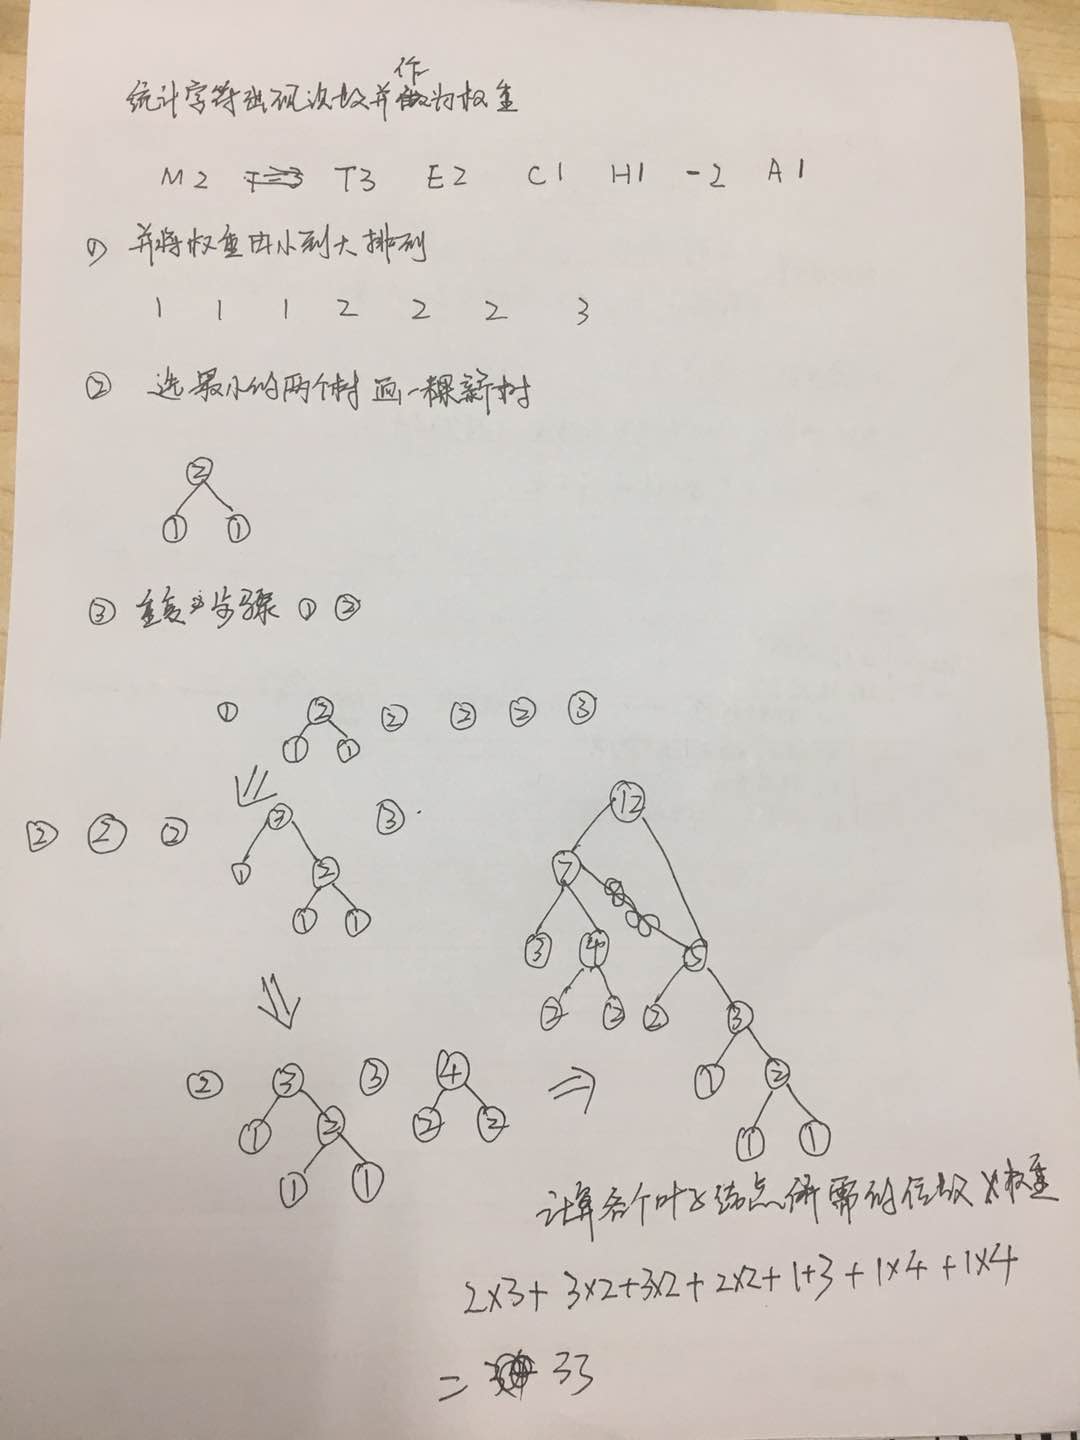 作
统计字符出现次数并做为权重
M2 T3 E2 C1 H1 -2 A1
① 并将权重由小到大排列
1 1 1 2 2 2 3
② 选最小的两个树画一棵新树
2
1 1
③ 重复步骤 ① ②
① ② ② ② ② ③
1 1
② ② ② 3 ③
1 2
1 1
12
7
3 4 5
2 2 2 3
1 2
1 1
② 3 ③ 4
1 2 2 2
1 1
计算各个叶子结点所需的位数×权重
2×3+3×2+3×2+2×2+1+3+1×4+1×4
= 33